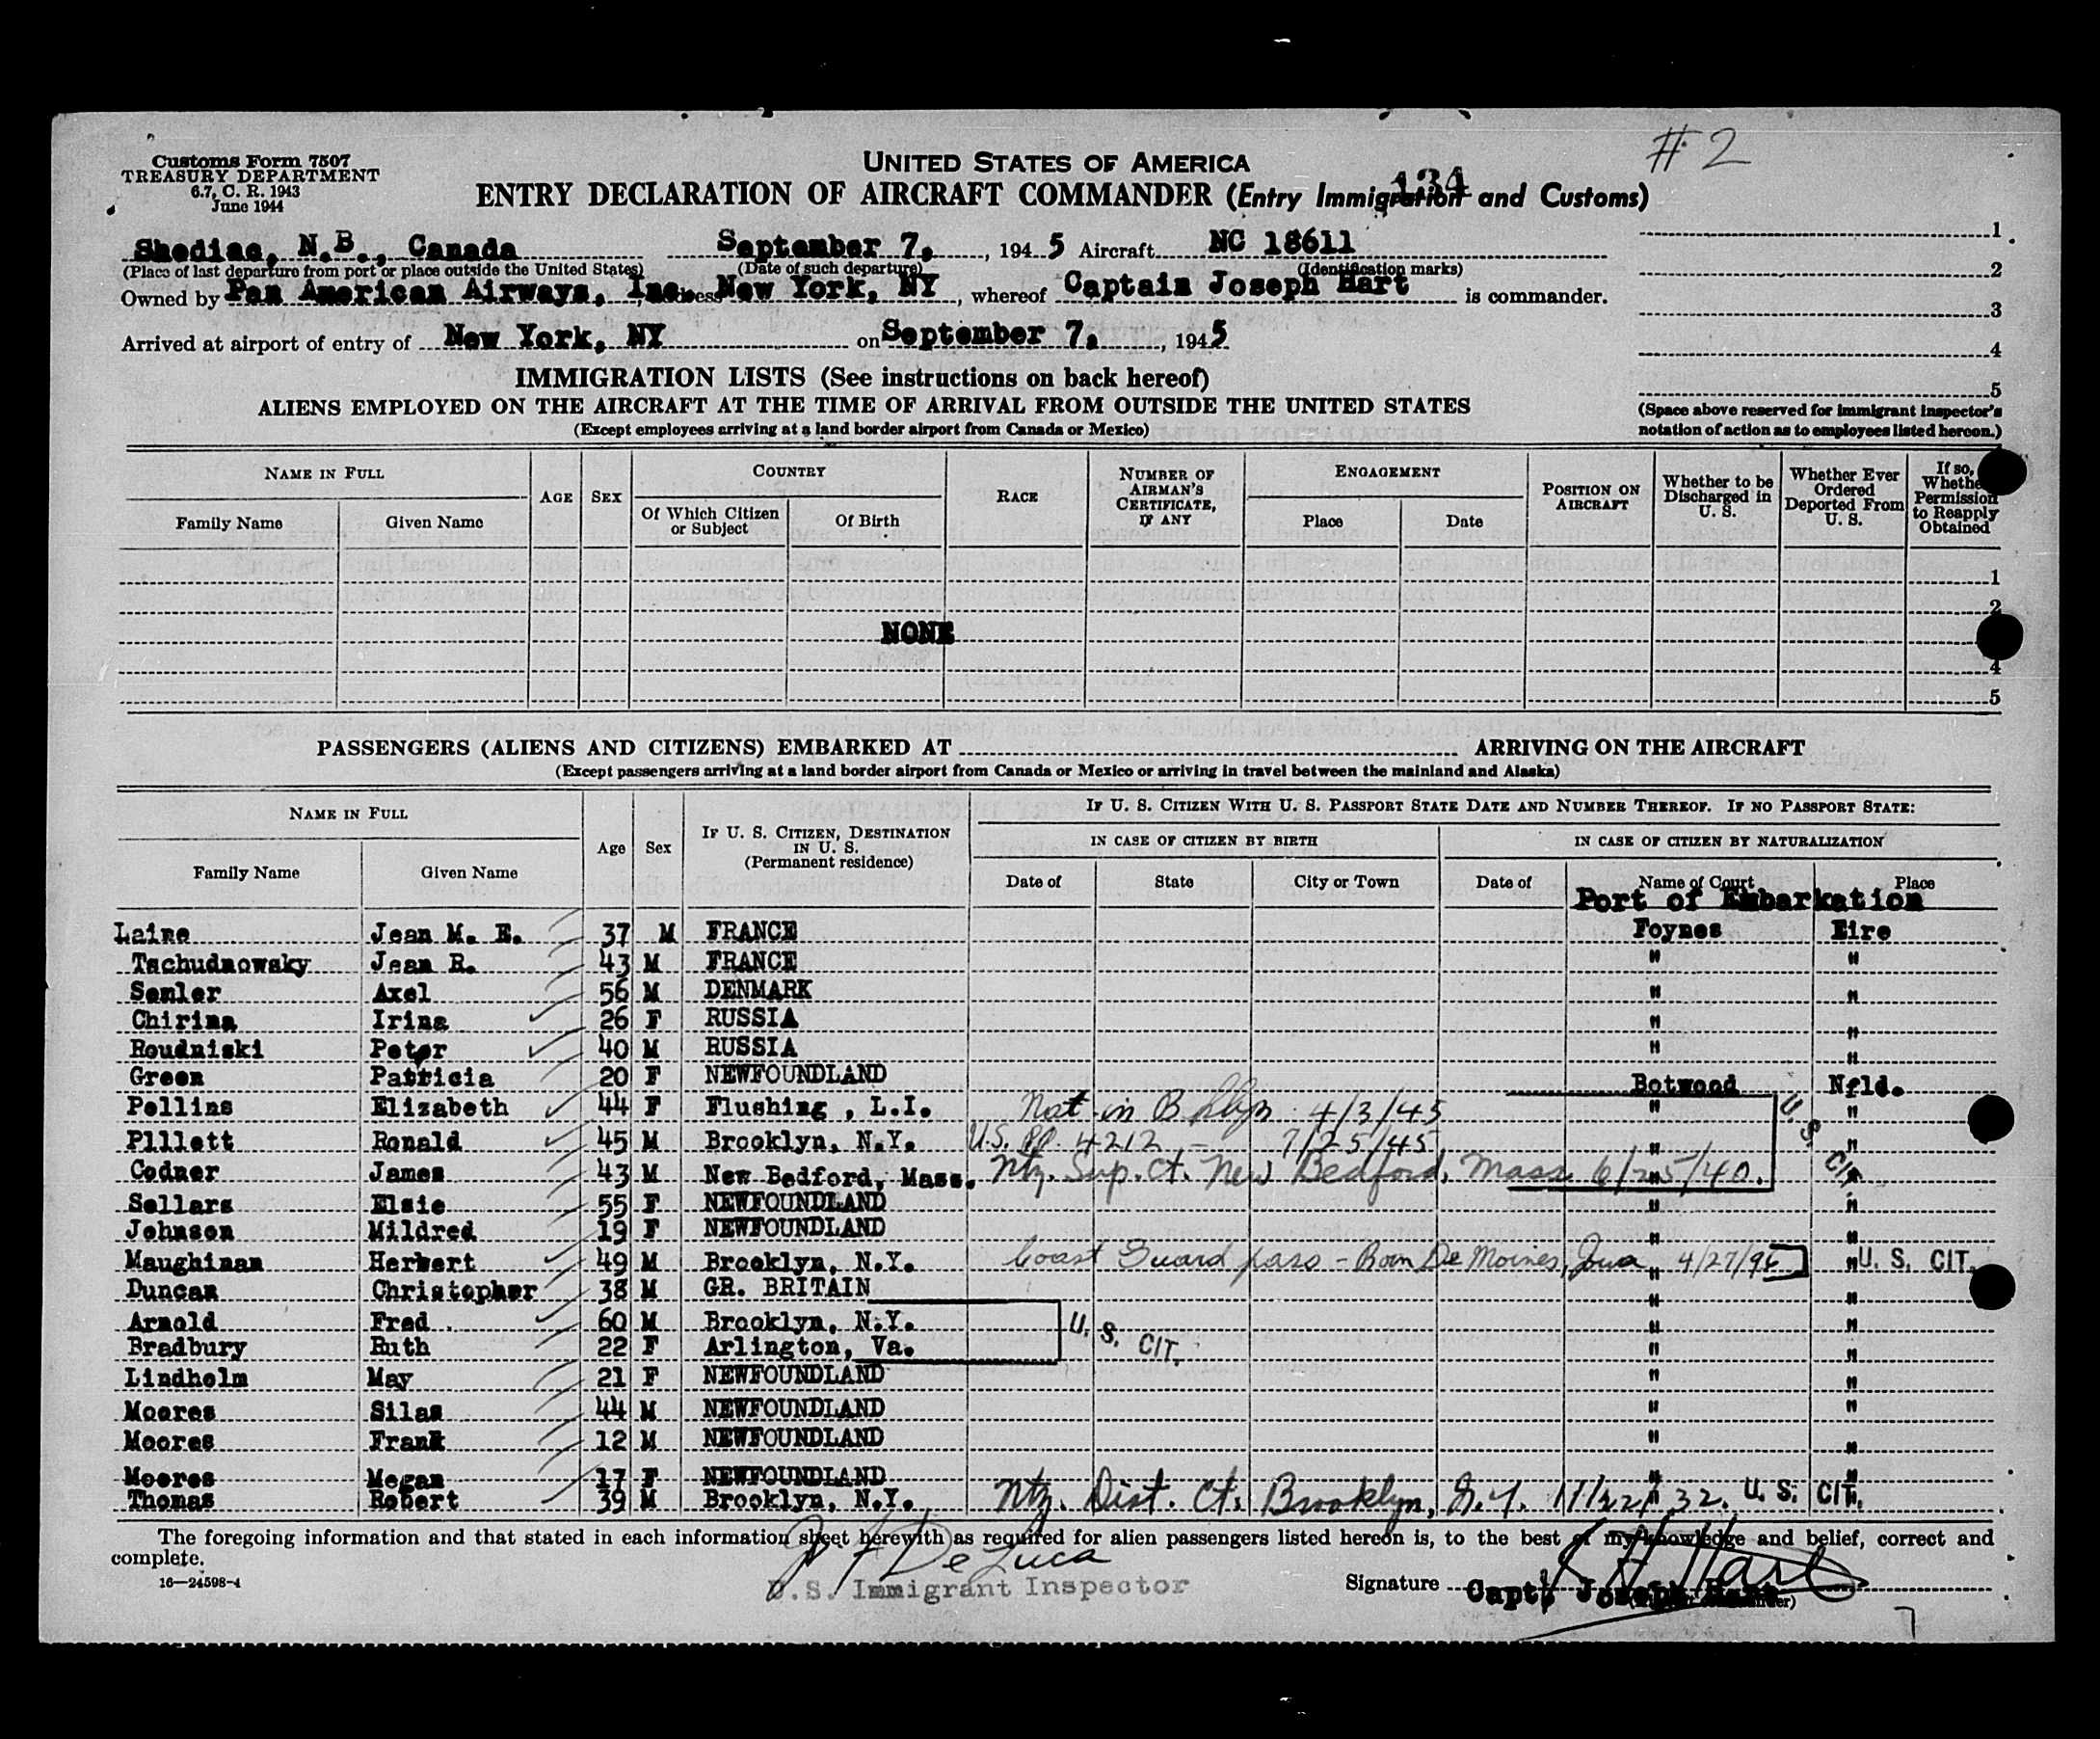 # 2
Customs Form 7507
TREASURY DEPARTMENT
6.7, C. R. 1943
June 1944
UNITED STATES OF AMERICA
134
ENTRY DECLARATION OF AIRCRAFT COMMANDER (Entry Immigration and Customs)
Shediac, N.B., Canada September 7, , 1945 Aircraft NC 18611
(Place of last departure from port or place outside the United States) (Date of such departure) (Identification marks)
Owned by Pan American Airways, Inc. New York, NY , whereof Captain Joseph Hart is commander.
Arrived at airport of entry of New York, NY on September 7, , 1945
1
2
3
4
5
(Space above reserved for immigrant inspector's
notation of action as to employees listed hereon.)
IMMIGRATION LISTS (See instructions on back hereof)
ALIENS EMPLOYED ON THE AIRCRAFT AT THE TIME OF ARRIVAL FROM OUTSIDE THE UNITED STATES
(Except employees arriving at a land border airport from Canada or Mexico)
NAME IN FULL
Family Name Given Name
AGE SEX
COUNTRY
Of Which Citizen or Subject Of Birth
RACE
NUMBER OF AIRMAN'S CERTIFICATE, IF ANY
ENGAGEMENT
Place Date
POSITION ON AIRCRAFT
Whether to be Discharged in U. S.
Whether Ever Ordered Deported From U. S.
If so, Whether Permission to Reapply Obtained
1
2
NONE
4
5
PASSENGERS (ALIENS AND CITIZENS) EMBARKED AT ARRIVING ON THE AIRCRAFT
(Except passengers arriving at a land border airport from Canada or Mexico or arriving in travel between the mainland and Alaska)
NAME IN FULL
Family Name Given Name
Age Sex
IF U. S. CITIZEN, DESTINATION IN U. S.
(Permanent residence)
IF U. S. CITIZEN WITH U. S. PASSPORT STATE DATE AND NUMBER THEREOF. IF NO PASSPORT STATE:
IN CASE OF CITIZEN BY BIRTH IN CASE OF CITIZEN BY NATURALIZATION
Date of State City or Town Date of Name of Court Place
Port of Embarkation
Laine Jean M. E. 37 M FRANCE Foynes Eire
Tschudnowsky Jean R. 43 M FRANCE " "
Semler Axel 56 M DENMARK " "
Chirina Irina 26 F RUSSIA " "
Roudniski Peter 40 M RUSSIA " "
Green Patricia 20 F NEWFOUNDLAND Botwood Nfld.
Pellins Elizabeth 44 F Flushing , L.I. Nat in Bklyn 4/3/45 " "
Plllett Ronald 45 M Brooklyn, N.Y. U.S. Pp. 4212 - 7/25/45 " "
Codner James 43 M New Bedford, Mass. Ntz. Sup. Ct. New Bedford, Mass 6/25/40. " "
U. S. CIT.
Sellars Elsie 55 F NEWFOUNDLAND " "
Johnson Mildred 19 F NEWFOUNDLAND " "
Maughinan Herbert 49 M Brooklyn, N.Y. Coast Guard pass - Born De Moines, Iowa 4/27/96 " " U. S. CIT.
Duncan Christopher 38 M GR. BRITAIN " "
Arnold Fred 60 M Brooklyn, N.Y. " "
Bradbury Ruth 22 F Arlington, Va. U. S. CIT. " "
Lindholm May 21 F NEWFOUNDLAND " "
Moores Silas 44 M NEWFOUNDLAND " "
Moores Frank 12 M NEWFOUNDLAND " "
Moores Megan 17 F NEWFOUNDLAND " "
Thomas Robert 39 M Brooklyn, N.Y. Ntz. Dist. Ct. Brooklyn, N.Y. 11/22/32. U. S. CIT.
The foregoing information and that stated in each information sheet herewith as required for alien passengers listed hereon is, to the best of my knowledge and belief, correct and
complete.
16—24598-4
De Luca
U.S. Immigrant Inspector
Signature Capt. Joseph Hart
7